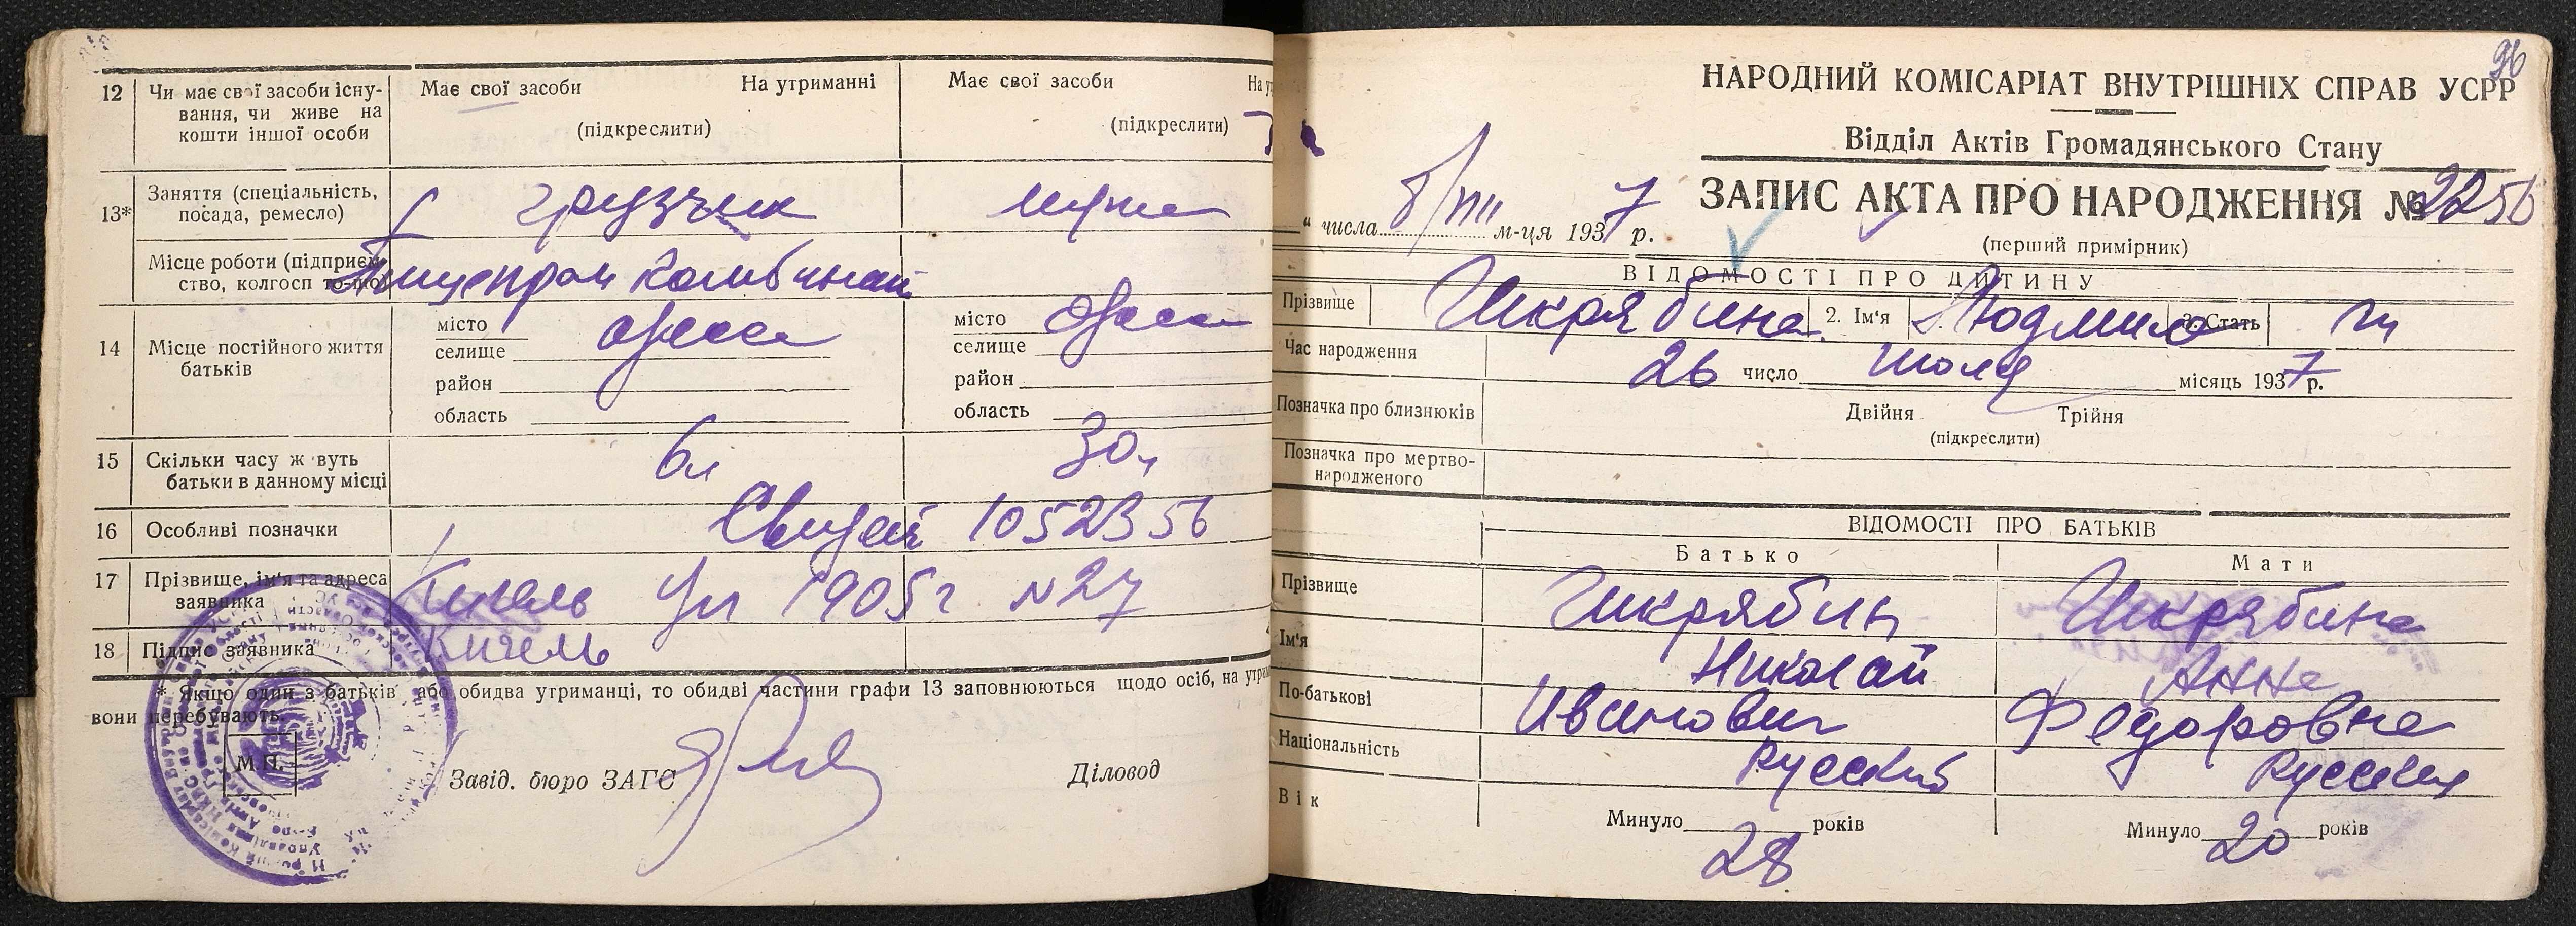 12 Чи має свої засоби існу-
вання, чи живе на
кошти іншої особи
Має свої засоби На утриманні
(підкреслити)
Має свої засоби
(підкреслити)
13* Заняття (спеціальність,
посада, ремесло)
грузчик
Місце роботи (підприєм-
ство, колгосп то-що)
Пищепром Комбинат
14 Місце постійного життя
батьків
місто Одесса
селище
район
область
місто Одесса
селище
район
область
15 Скільки часу живуть
батьки в данному місці
6л
30л
16 Особливі позначки
1052356
17 Прізвище, ім'я та адреса
заявника
ул 1905г №27
18 Підпис заявника
* Якщо один з батьків або обидва утриманці, то обидві частини графи 13 заповнюються щодо осіб, на
вони перебувають.
М.П.
Завід. бюро ЗАГС
Діловод
96
НАРОДНИЙ КОМІСАРІАТ ВНУТРІШНІХ СПРАВ УСРР
Відділ Актів Громадянського Стану
ЗАПИС АКТА ПРО НАРОДЖЕННЯ № 2256
(перший примірник)
" числа 8/VIII м-ця 1937 р.
ВІДОМОСТІ ПРО ДИТИНУ
Прізвище Шкрябина 2. Ім'я Людмила 3. Стать
Час народження 26 число Июля місяць 1937 р.
Позначка про близнюків Двійня Трійня
(підкреслити)
Позначка про мертво-
народженого
ВІДОМОСТІ ПРО БАТЬКІВ
Батько Мати
Прізвище Шкрябин Шкрябина
Ім'я Николай Анна
По-батькові Иванович Федоровна
Національність Русский Русская
Вік Минуло 28 років Минуло 20 років